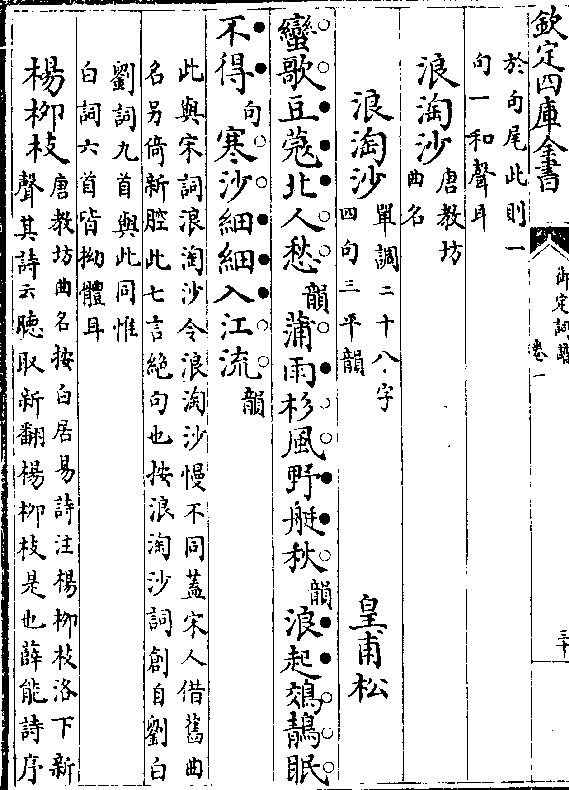 欽定四庫全書
御定詞譜
卷一
三十
於句尾此則一
句一和聲耳
浪淘沙
唐教坊
曲名
浪淘沙
單調二十八字
四句三平韻
皇甫松
蠻歌豆蔻北人愁韻蒲雨杉風野艇秋韻浪起鵁鶄眠
不得句寒沙細細入江流韻
此與宋詞浪淘沙令浪淘沙慢不同蓋宋人借舊曲
名另倚新腔此七言絶句也按浪淘沙詞創自劉白
劉詞九首與此同惟
白詞六首皆拗體耳
楊柳枝
唐教坊曲名按白居易詩注楊柳枝洛下新
聲其詩云聽取新翻楊柳枝是也薛能詩序